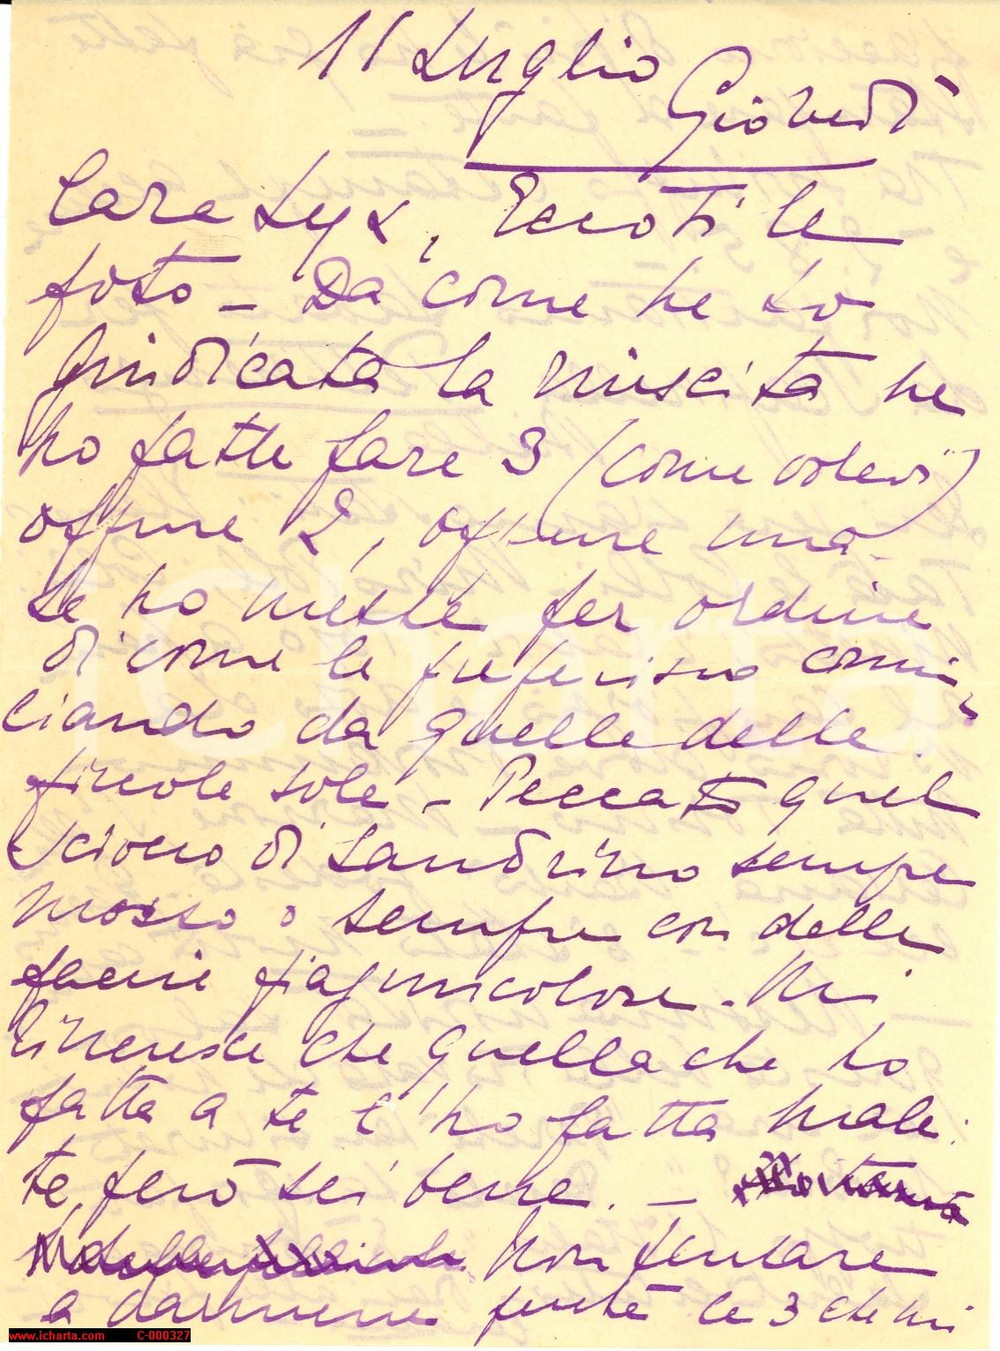 11 Luglio
Giovedì
Cara Lyx, Eccoti le
foto - Da come ne ho
giudicata la riuscita ne
ho fatte fare 3 (come volevi)
oppure 2, oppure una
Le ho messe per ordine
di come le preferisco comin
ciando da quelle delle
piccole sole - Peccato quel
sciocco di Sandrino sempre
mosso o sempre con delle
facce piagnucolose. Mi
rincresce che quella che ho
fatta a te l'ho fatta male:
te, però sei bene. -
Non pensare
a darmene perchè le 3 che mi
www.icharta.com C-000327
icharta